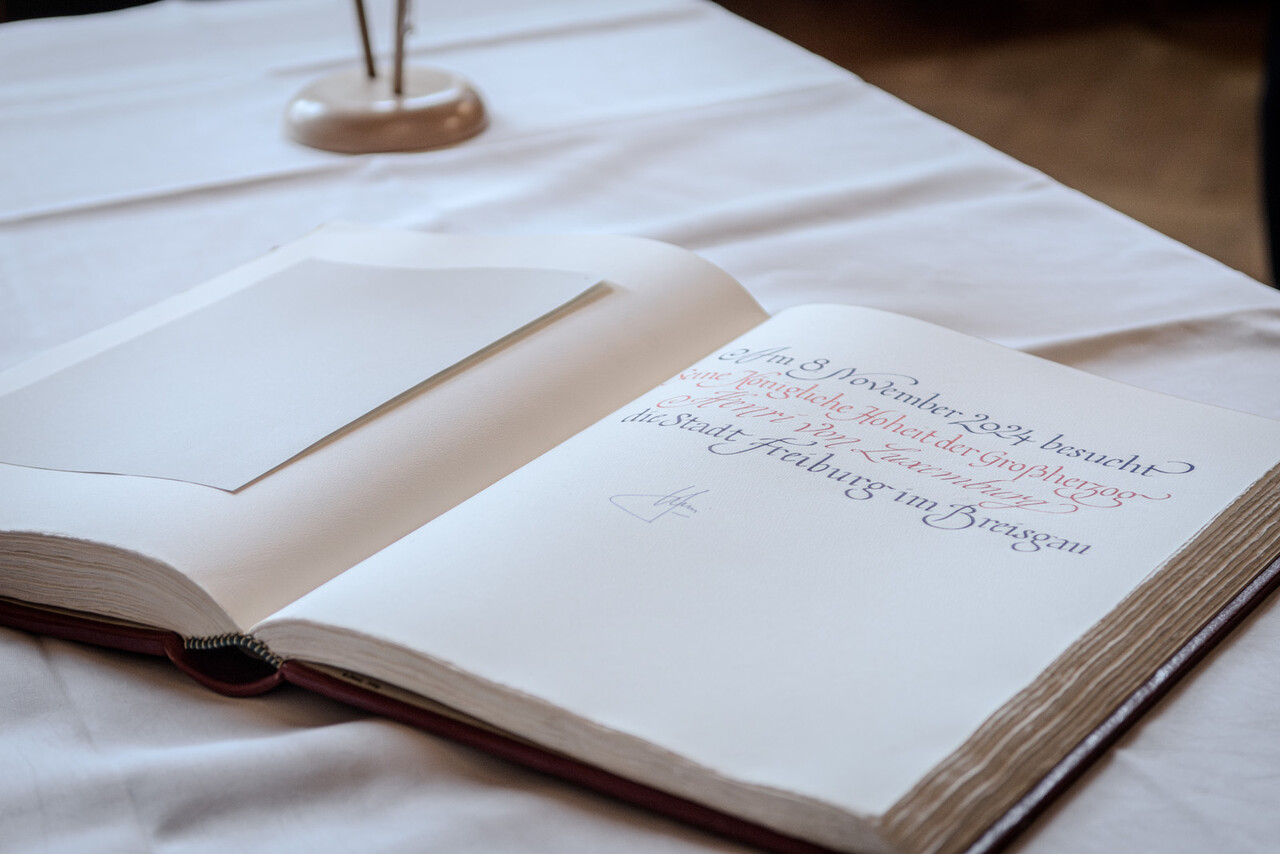 Am 8 November 2024 besucht
seine Königliche Hoheit der Großherzog
Henri von Luxemburg
die Stadt Freiburg im Breisgau
Henri